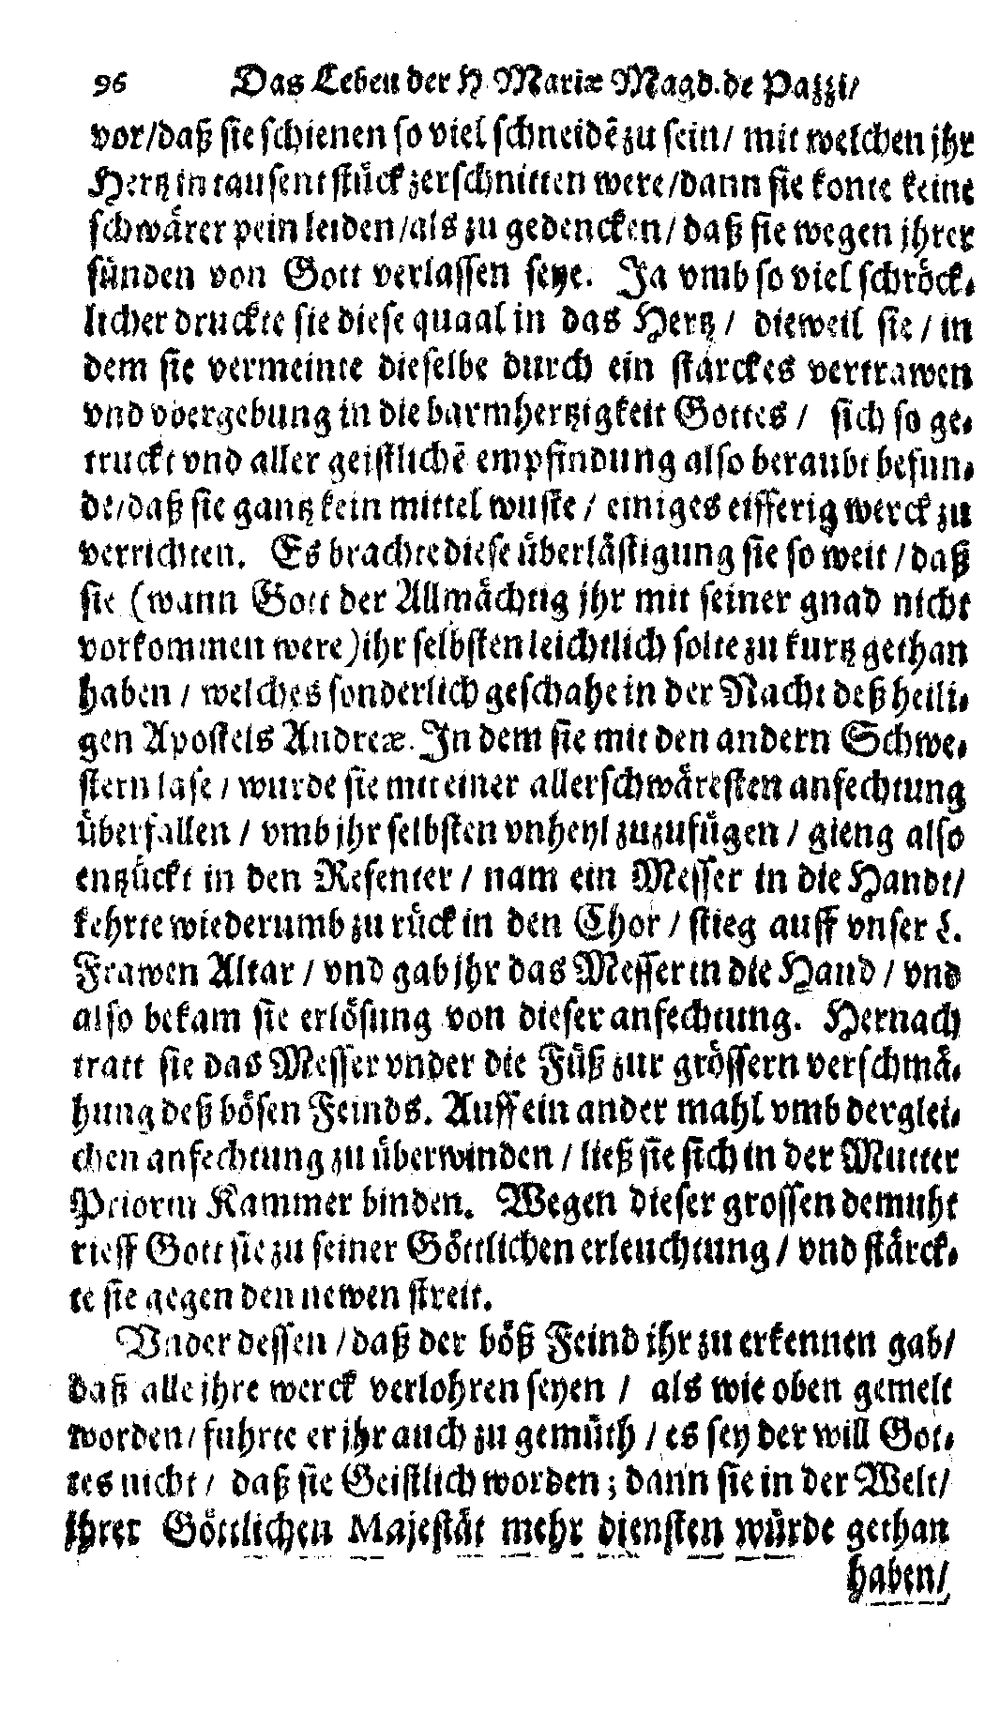 96 Das Leben der H. Mariæ Magd. de Pazzi/
vor/daß sie schienen so viel schneidē zu sein/ mit welchen jhr
Hertz in tausent stück zerschnitten were/dann sie konte keine
schwärer pein leiden/als zu gedencken/daß sie wegen jhrer
sünden von Gott verlassen seye. Ja vmb so viel schröck-
licher druckte sie diese quaal in das Hertz/ dieweil sie/in
dem sie vermeinte dieselbe durch ein starckes vertrawen
vnd vbergebung in die barmhertzigkeit Gottes/ sich so ge-
truckt vnd aller geistlichē empfindung also beraubt befun-
de/daß sie gantz kein mittel wuste/ einiges eifferig werck zu
verrichten. Es brachte diese überlästigung sie so weit/daß
sie (wann Gott der Allmächtig jhr mit seiner gnad nicht
vorkommen were) ihr selbsten leichtlich solte zu kurtz gethan
haben/ welches sonderlich geschahe in der Nacht deß heili-
gen Apostels Andreæ. In dem sie mit den andern Schwe-
stern lase/ wurde sie mit einer allerschwäresten anfechtung
überfallen/ vmb jhr selbsten vnheyl zuzufügen/ gieng also
entzückt in den Refenter/ nam ein Messer in die Handt/
kehrte wiederumb zu rück in den Chor/ stieg auff vnser L.
Frawen Altar/ vnd gab jhr das Messer in die Hand/ vnd
also bekam sie erlösung von dieser anfechtung. Hernach
tratt sie das Messer vnder die Füß zur grössern verschmä-
hung deß bösen Feinds. Auff ein ander mahl vmb derglei-
chen anfechtung zu überwinden/ ließ sie sich in der Mutter
Priorin Kammer binden. Wegen dieser grossen demuht
rieff Gott sie zu seiner Göttlichen erleuchtung/ vnd stärck-
te sie gegen den newen streit.
Vnder dessen/daß der böß Feind jhr zu erkennen gab/
daß alle jhre werck verlohren seyen/ als wie oben gemelt
worden/ fuhrte er jhr auch zu gemüth/ es sey der will Got-
tes nicht/ daß sie Geistlich worden; dann sie in der Welt/
jhrer Göttlichen Majestät mehr diensten würde gethan
haben/